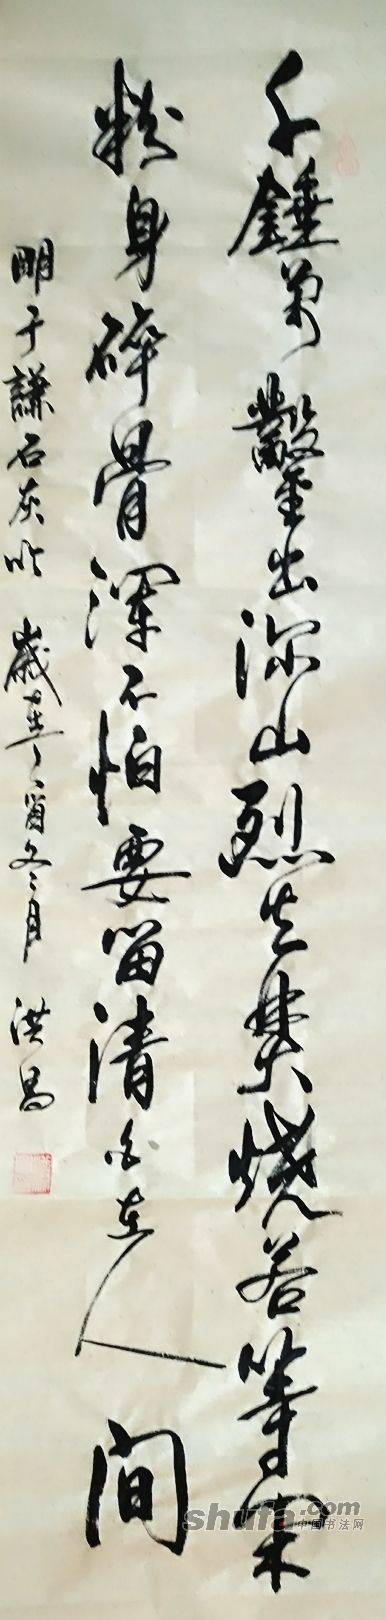 千錘萬鑿出深山烈火焚燒若等閑
粉身碎骨渾不怕要留清白在人间
明于謙石灰吟 歲在丁酉冬月 洪昌
shufa.com
中国书法网